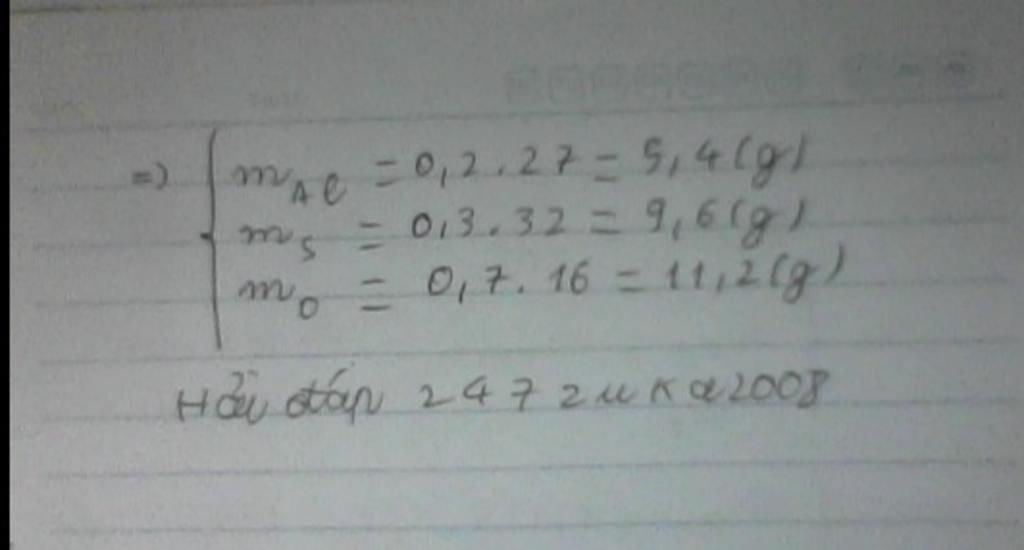 => { m_Al = 0,2.27 = 5,4(g)
m_S = 0,3.32 = 9,6(g)
m_O = 0,7.16 = 11,2(g)
Hỏi đáp 247 zukα2008